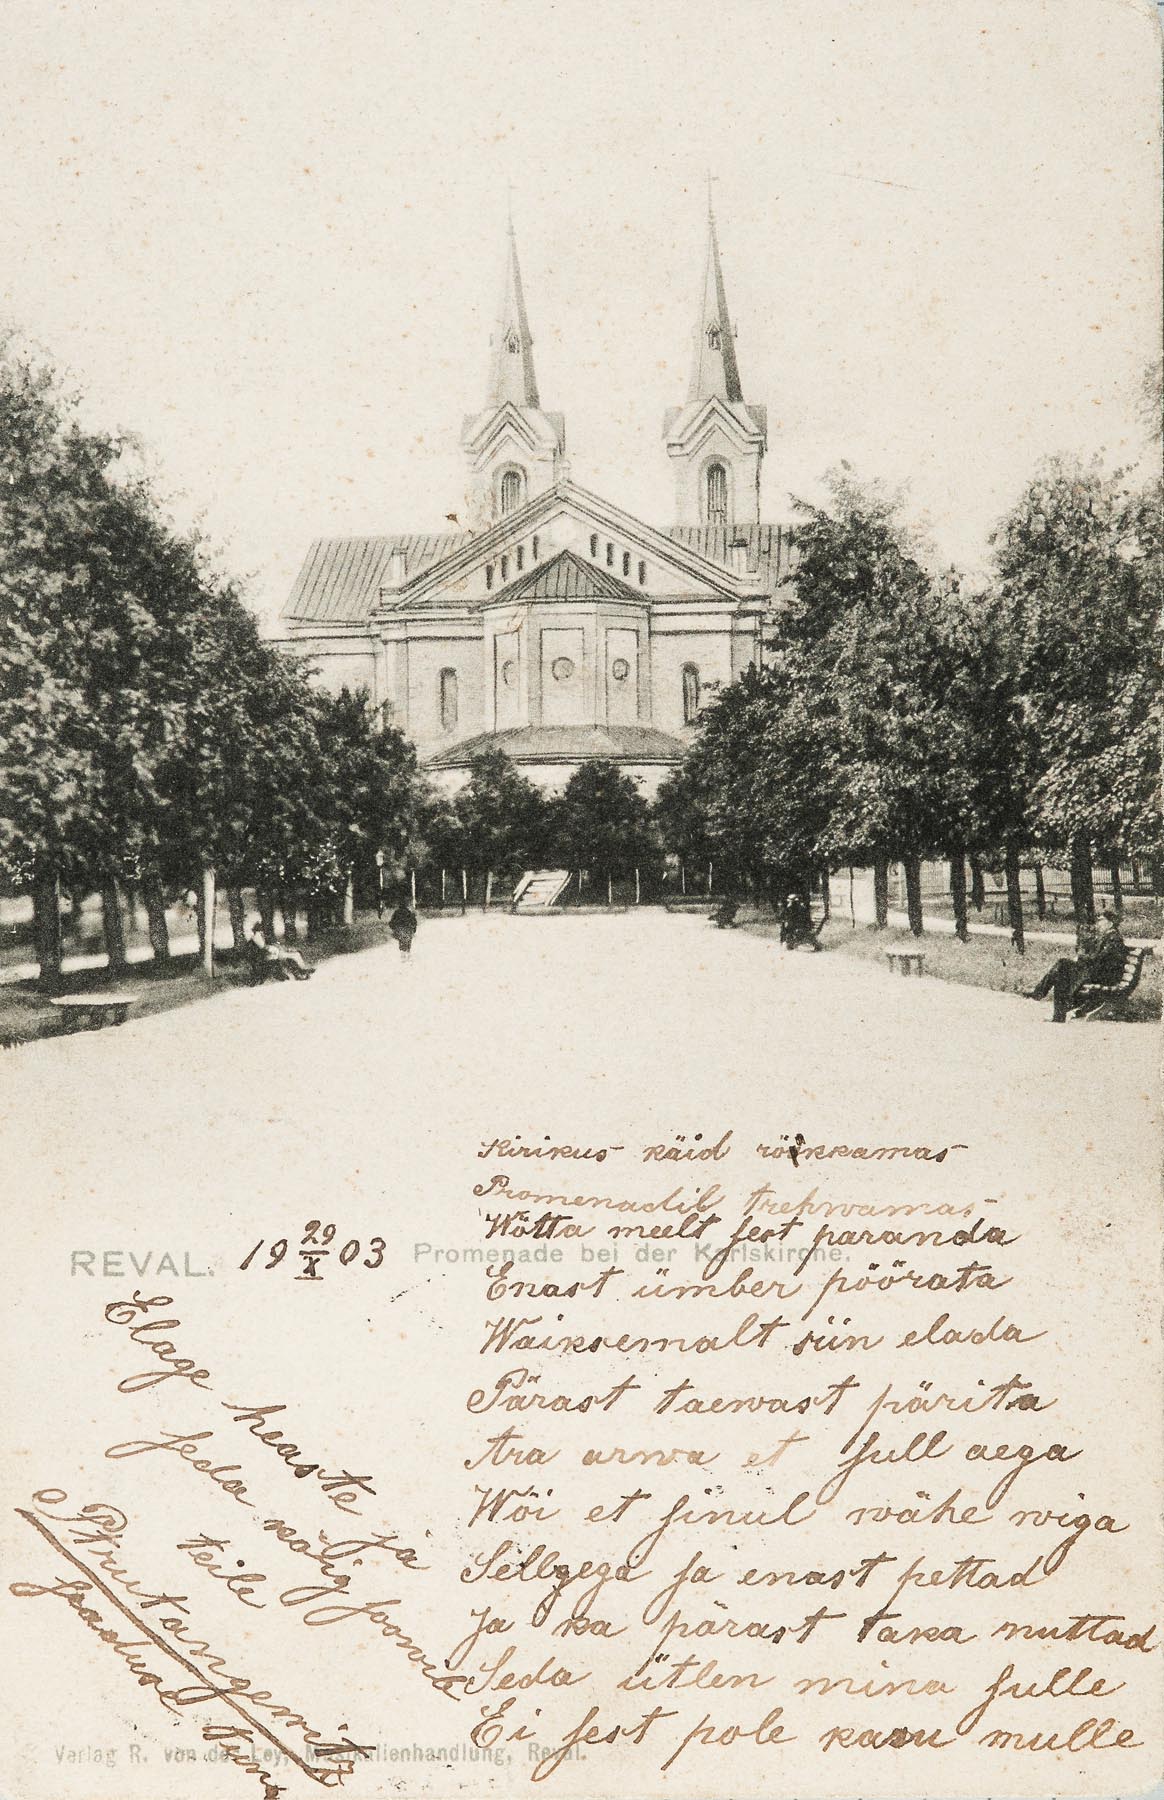 Kirikus käid röökkamas
Promenadil trehwamas
Wõtta meelt sest paranda
REVAL. 19 29/X 03 Promenade bei der Karlskirche.
Enast ümber pöörata
Waiksemalt siin elada
Pärast taewast pärita
Ära arwa et sull aega
Wõi et sinul wähe wiga
Sellgega sa enast pettad
Ja ka pärast taka nuttad
Seda ütlen mina sulle
Ei sest pole kasu mulle
Elage heaste ja
seda kõig soowib
teile
saadust
Verlag R. von der Ley, Musikalienhandlung, Reval.